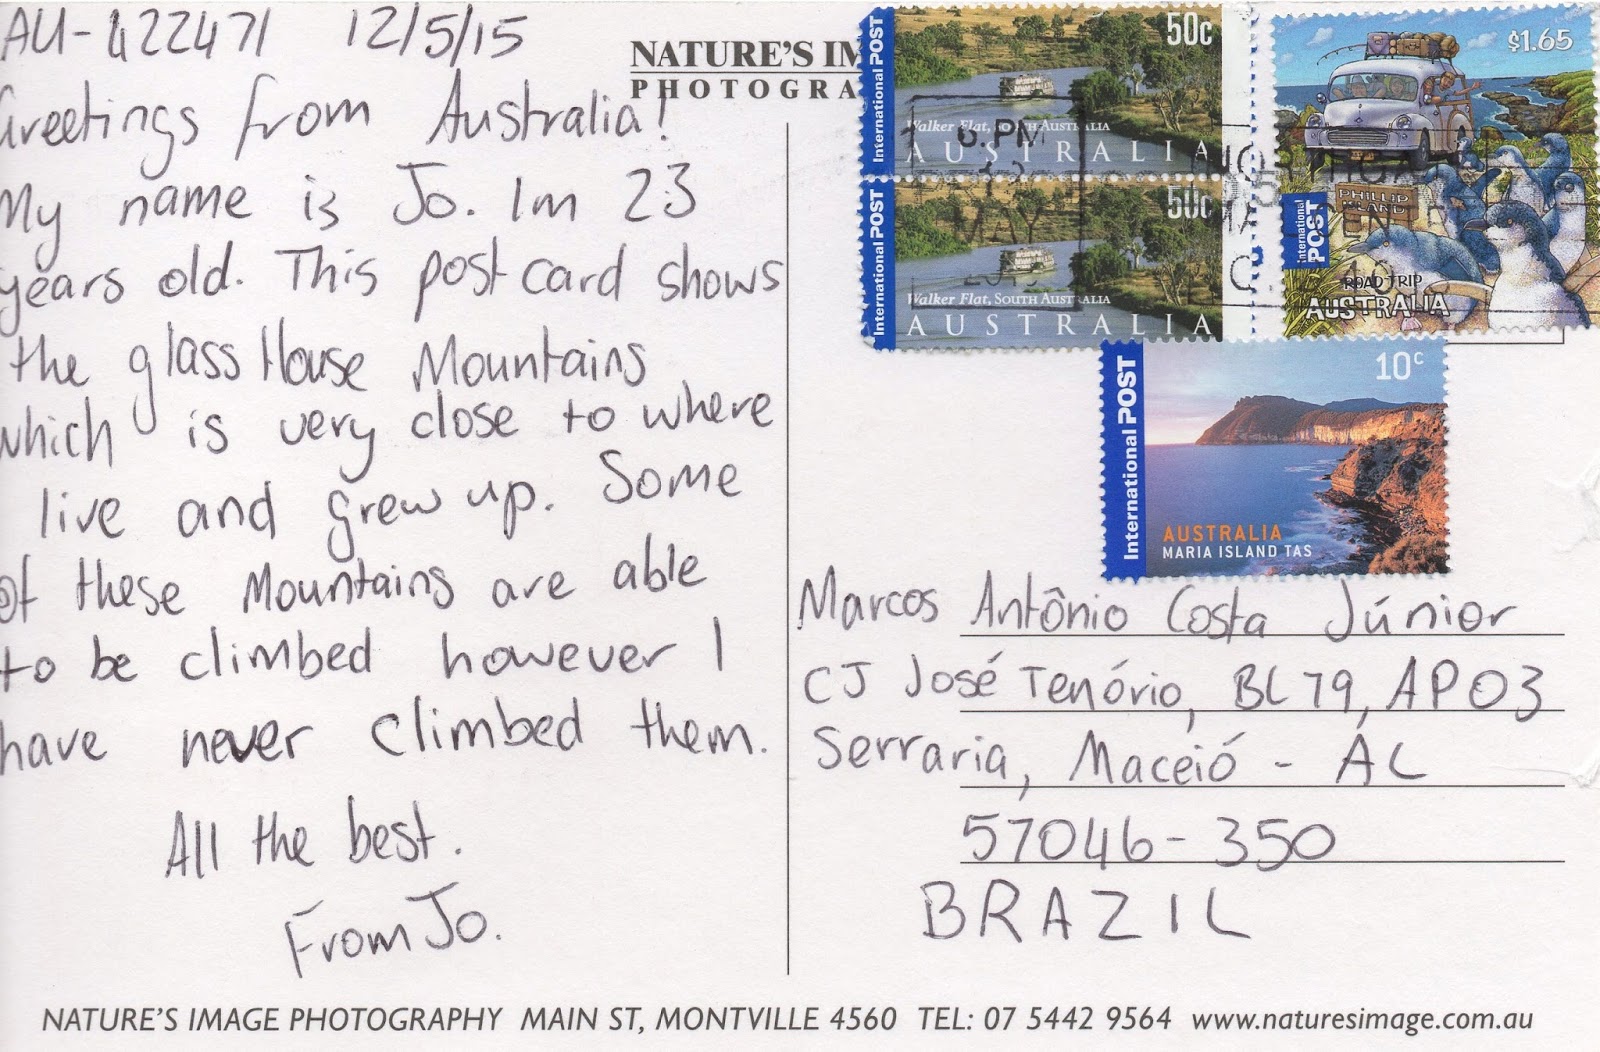 AU-422471 12/5/15
Greetings from Australia!
My name is Jo. Im 23
years old. This postcard shows
the glass House Mountains
which is very close to where
live and grew up. Some
of these Mountains are able
to be climbed however I
have never climbed them.
All the best.
From Jo.
NATURE'S IM
PHOTOGRA
International POST
50c
Walker Flat, SOUTH AUSTRALIA
AUSTRALIA
International POST
50c
Walker Flat, SOUTH AUSTRALIA
AUSTRALIA
$1.65
PHILLIP ISLAND
International POST
ROAD TRIP
AUSTRALIA
6.PM
MAY
International POST
10c
AUSTRALIA
MARIA ISLAND TAS
Marcos Antônio Costa Júnior
CJ José Tenório, BL79, AP03
Serraria, Maceió - AL
57046-350
BRAZIL
NATURE'S IMAGE PHOTOGRAPHY MAIN ST, MONTVILLE 4560 TEL: 07 5442 9564 www.naturesimage.com.au